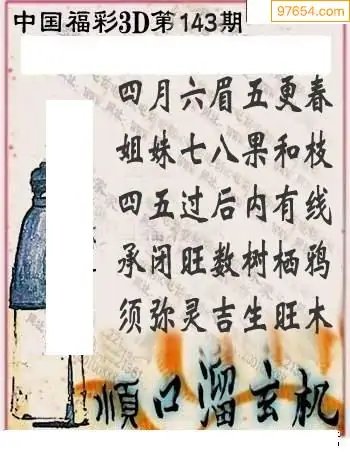 97654.com
中国福彩3D第143期
四月六眉五更春
姐妹七八果和枝
四五过后内有线
承闭旺数树栖鸦
须弥灵吉生旺木
顺口溜玄机